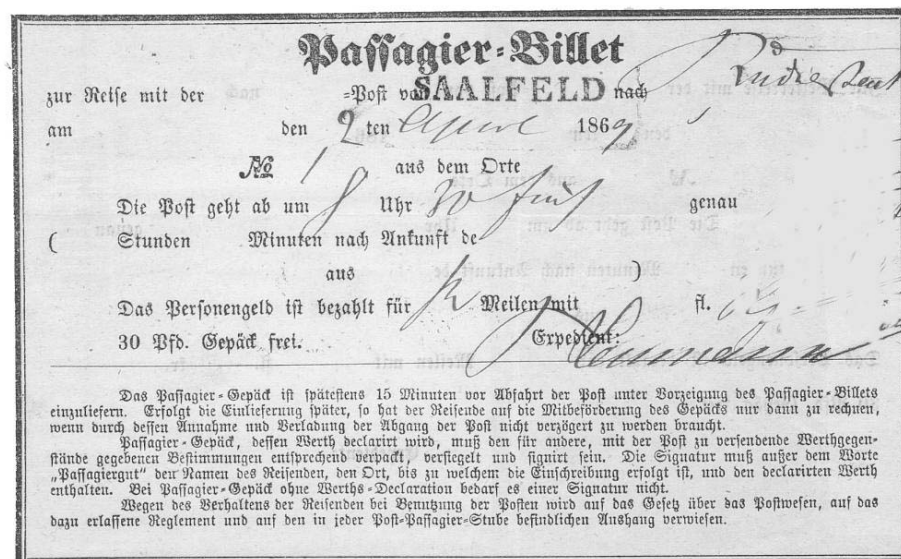 Passagier-Billet
zur Reise mit der -Post von SAALFELD nach
am den 2 ten April 186
No 1 aus dem Orte
Die Post geht ab um 8 Uhr 30 früh genau
( Stunden Minuten nach Ankunft de
aus )
Das Personengeld ist bezahlt für Meilen mit fl.
30 Pfd. Gepäck frei. Expedient:
Das Passagier-Gepäck ist spätestens 15 Minuten vor Abfahrt der Post unter Vorzeigung des Passagier-Billets
einzuliefern. Erfolgt die Einlieferung später, so hat der Reisende auf die Mitbeförderung des Gepäcks nur dann zu rechnen,
wenn durch dessen Annahme und Verladung der Abgang der Post nicht verzögert zu werden braucht.
Passagier-Gepäck, dessen Werth declarirt wird, muß den für andere, mit der Post zu versendende Werthgegen-
stände gegebenen Bestimmungen entsprechend verpackt, versiegelt und signirt sein. Die Signatur muß außer dem Worte
„Passagiergut” den Namen des Reisenden, den Ort, bis zu welchem die Einschreibung erfolgt ist, und den declarirten Werth
enthalten. Bei Passagier-Gepäck ohne Werths-Declaration bedarf es einer Signatur nicht.
Wegen des Verhaltens der Reisenden bei Benutzung der Posten wird auf das Gesetz über das Postwesen, auf das
dazu erlassene Reglement und auf den in jeder Post-Passagier-Stube befindlichen Aushang verwiesen.